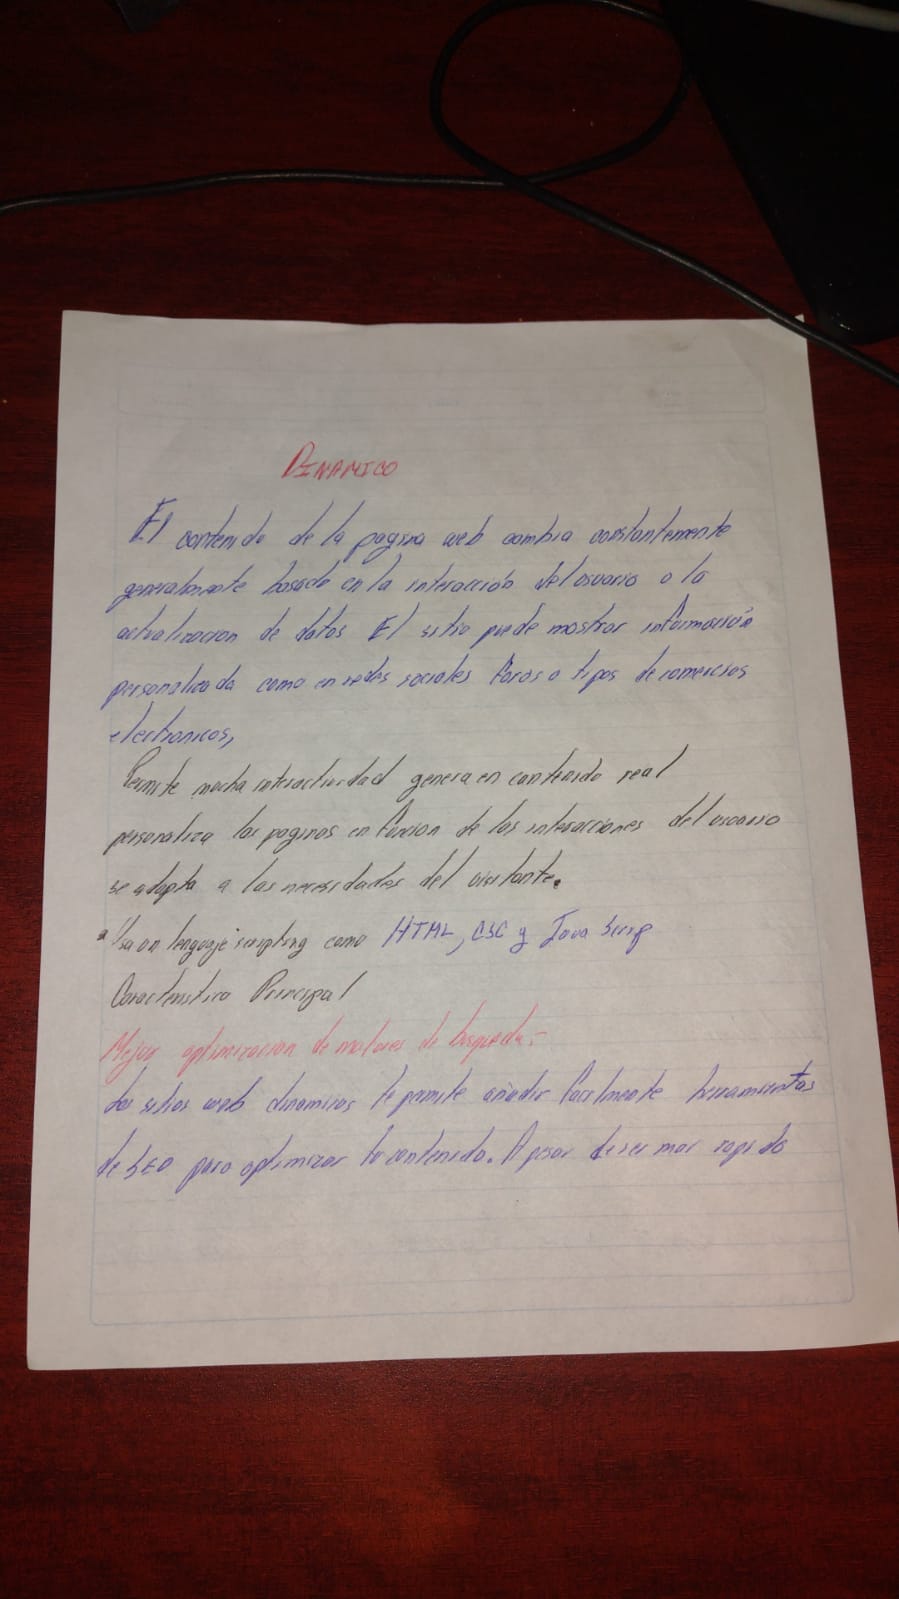 DINAMICO
El contenido de la pagina web cambia constantemente
generalmente basado en la interacción del usuario o la
actualizacion de datos El sitio puede mostrar información
personalizada como en redes sociales foros o tipos de comercios
electronicos,
Permite mucha interactividad genera en contenido real
personaliza las paginas en funcion de las interacciones del usuario
se adapta a las necesidades del visitante.
Usa un lenguaje scripting como HTML, CSC y Java Scrip
Caracteristica Principal
Mejor optimizacion de motores de busqueda:-
Los sitios web dinamicos te permite añadir facilmente herramientas
de SEO para optimizar tu contenido. A pesar de ser mas rapido